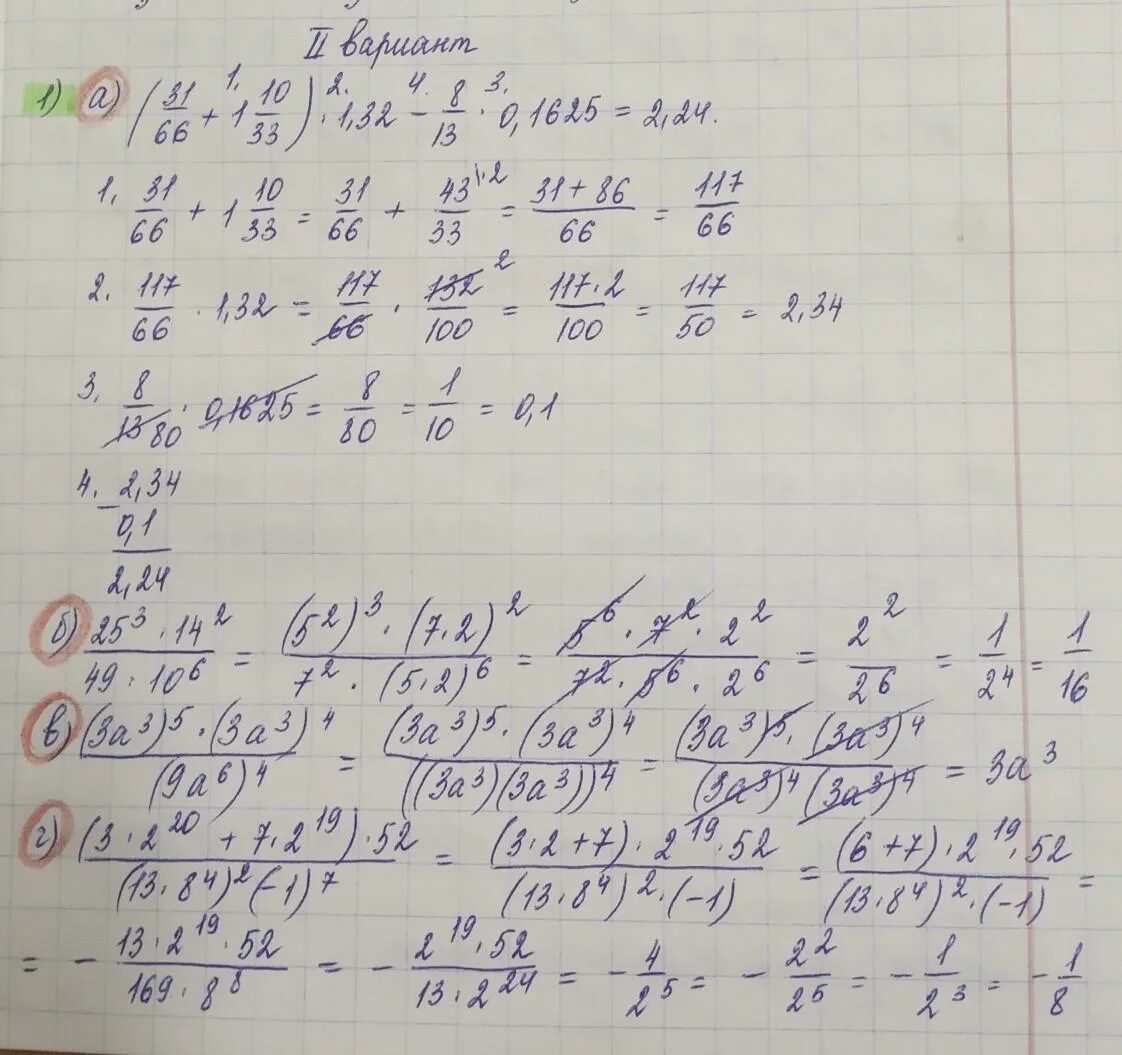 II вариант
1) а) (31/66 + 1 10/33) · 1,32 − 8/13 · 0,1625 = 2,24.
1. 2. 4. 3.
1. 31/66 + 1 10/33 = 31/66 + 43/33 ^(\·2) = (31 + 86)/66 = 117/66
2. 117/66 · 1,32 = 117/66 · 132/100 ² = (117 · 2)/100 = 117/50 = 2,34
3. 8/13 80 · 0,1625 = 8/80 = 1/10 = 0,1
4. − 2,34
0,1
2,24
б) (25³ · 14²)/(49 · 10⁶) = ((5²)³ · (7·2)²)/(7² · (5·2)⁶) = (5⁶ · 7² · 2²)/(7² · 5⁶ · 2⁶) = 2²/2⁶ = 1/2⁴ = 1/16
в) ((3a³)⁵ · (3a³)⁴)/(9a⁶)⁴ = ((3a³)⁵ · (3a³)⁴)/((3a³)(3a³))⁴ = ((3a³)⁵ · (3a³)⁴)/((3a³)⁴ (3a³)⁴) = 3a³
г) ((3 · 2²⁰ + 7 · 2¹⁹) · 52)/((13 · 8⁴)² (−1)⁷) = ((3 · 2 + 7) · 2¹⁹ · 52)/((13 · 8⁴)² · (−1)) = ((6 + 7) · 2¹⁹ · 52)/((13 · 8⁴)² · (−1)) =
= − (13 · 2¹⁹ · 52)/(169 · 8⁸) = − (2¹⁹ · 52)/(13 · 2²⁴) = − 4/2⁵ = − 2²/2⁵ = − 1/2³ = − 1/8